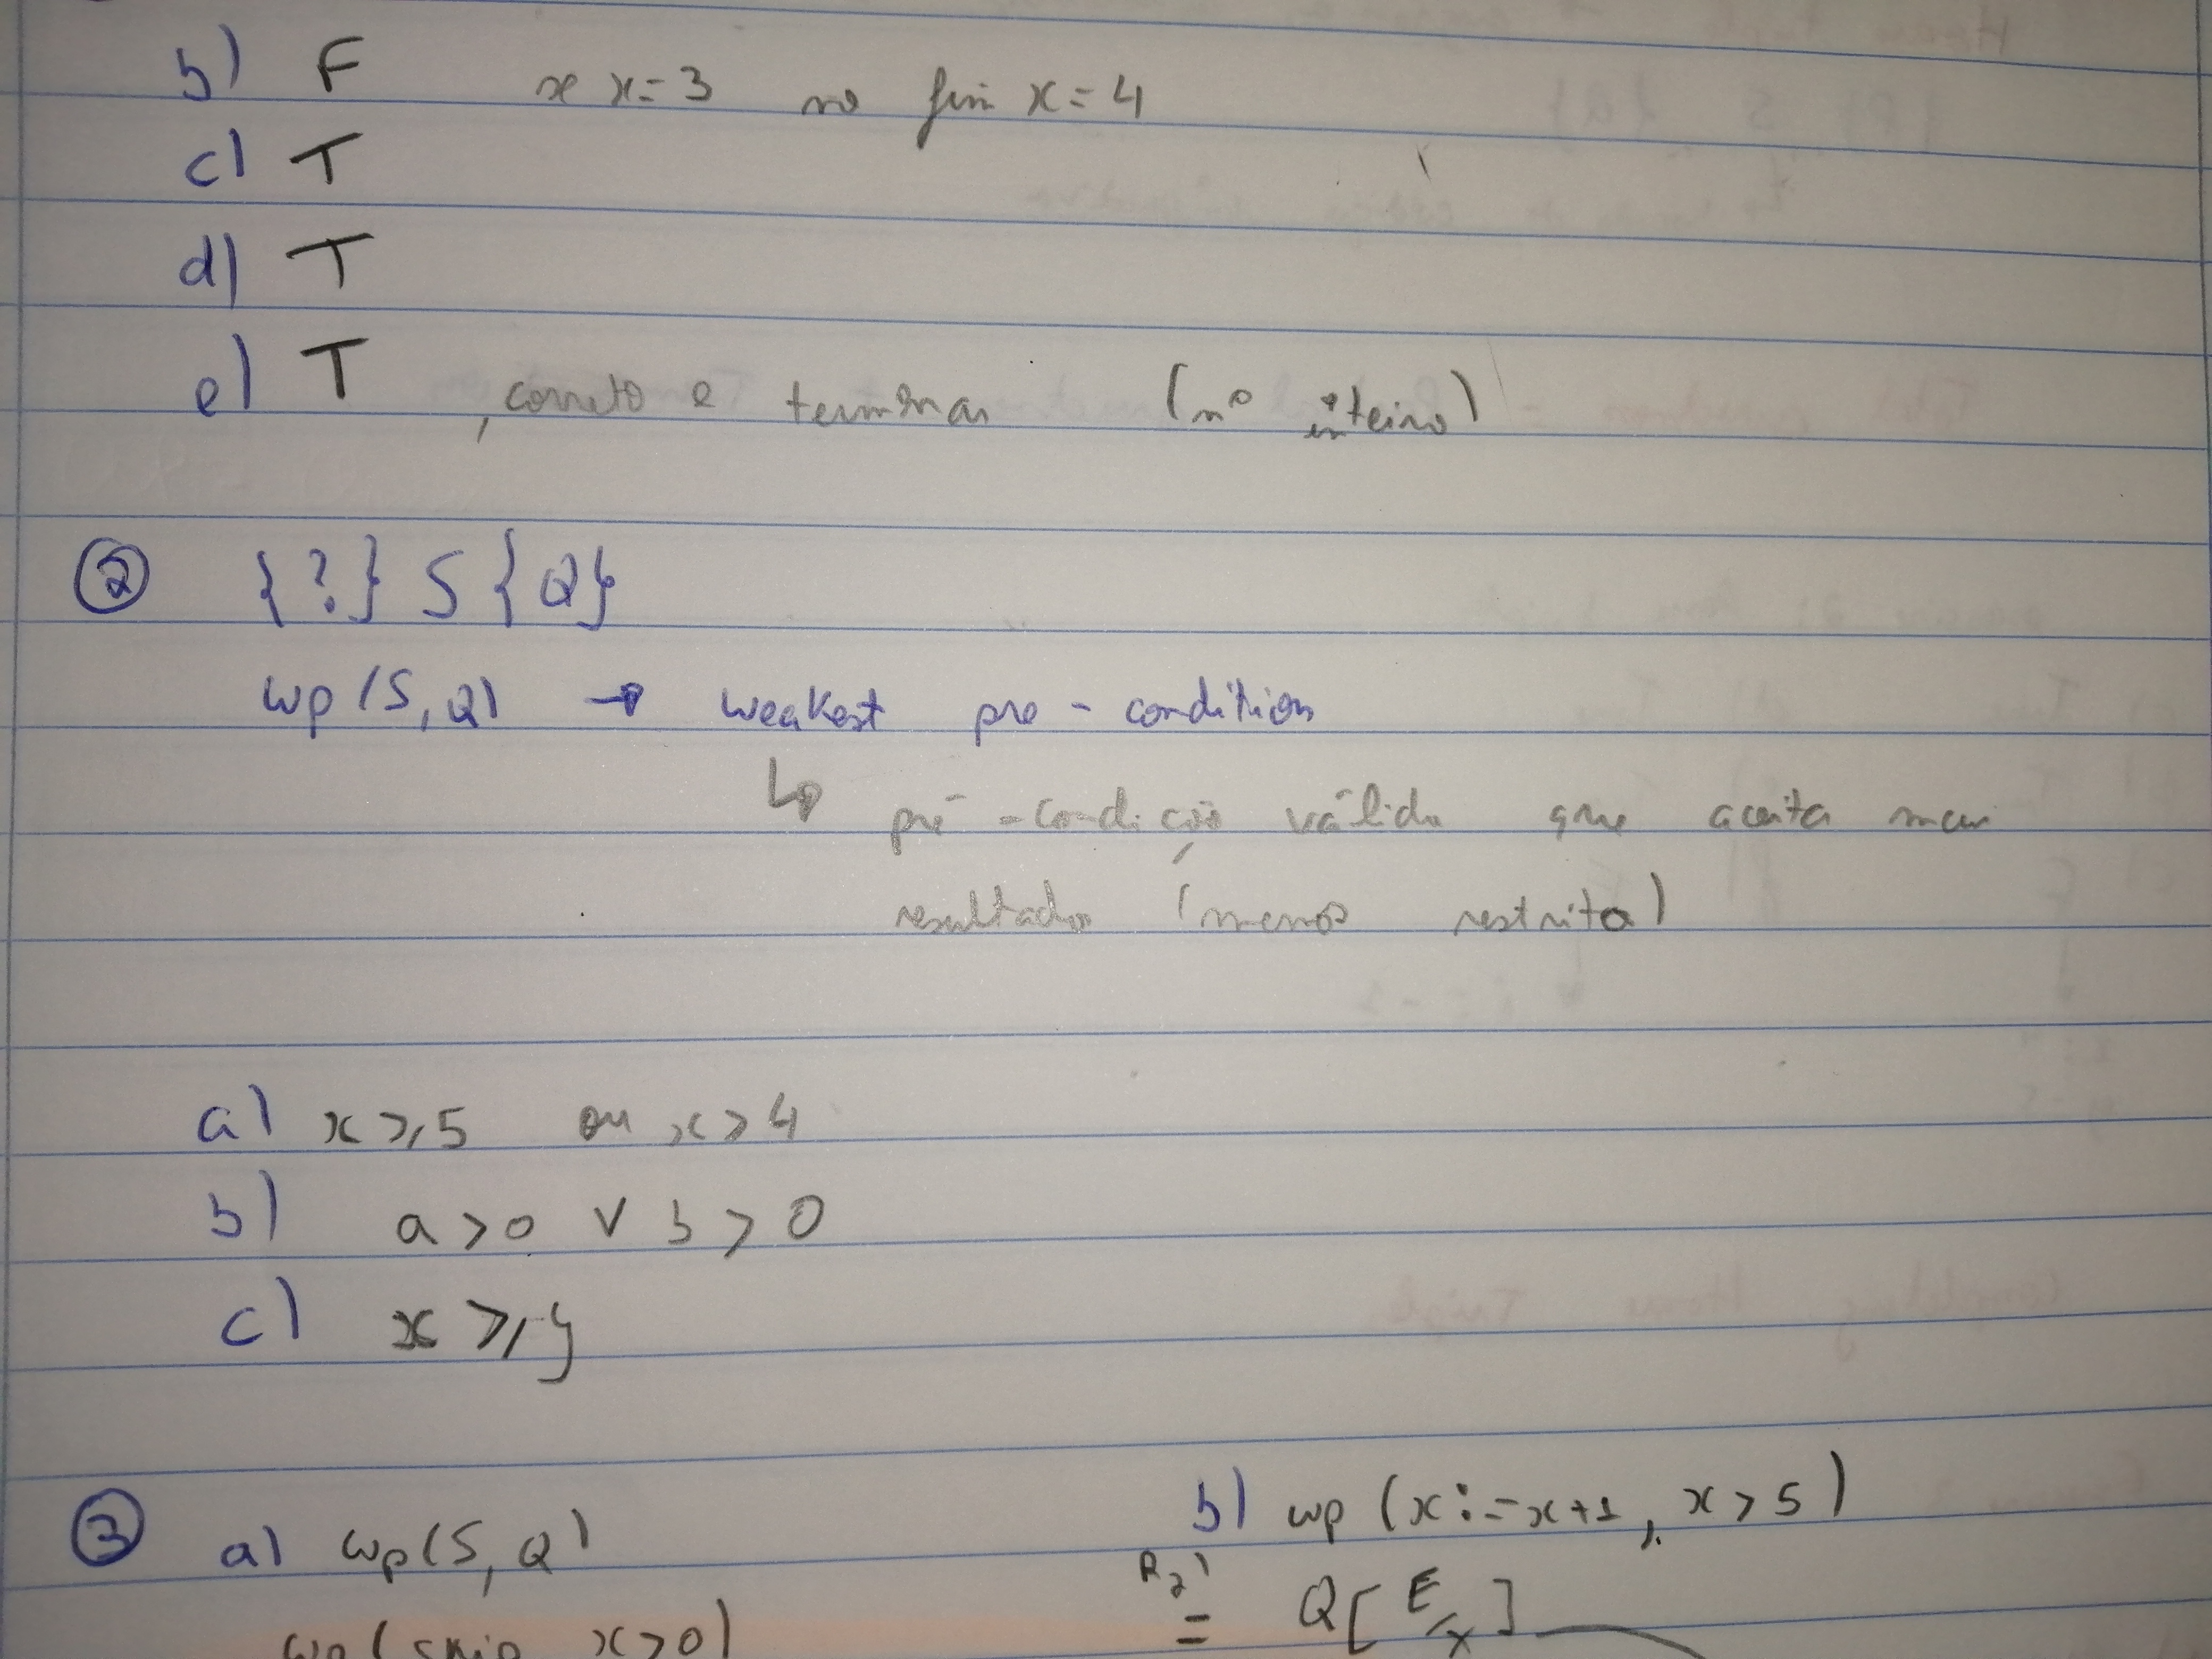 b) F se x=3 no fim x=4
c) T
d) T
e) T , correto e terminar (nº inteiro)
② {?} S {Q}
wp(S,Q) → weakest pre-condition
↳ pré-condição válida que aceita mais
resultados (menos restrita)
a) x ≥ 5 ou x > 4
b) a > 0 ∨ b > 0
c) x ≥ y
③ a) wp(S, Q)
wp(skip, x>0)
b) wp (x:=x+1, x>5)
= Q[E/x]